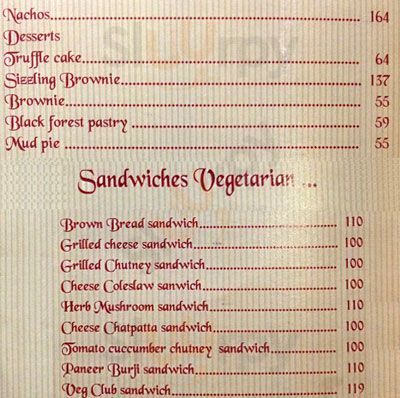 Nachos 164
Desserts
Truffle cake 64
Sizzling Brownie 137
Brownie 55
Black forest pastry 59
Mud pie 55
Sandwiches Vegetarian ...
Brown Bread sandwich 110
Grilled cheese sandwich 100
Grilled Chutney sandwich 100
Cheese Coleslaw sanwich 100
Herb Mushroom sandwich 110
Cheese Chatpatta sandwich 100
Tomato cuccumber chutney sandwich 100
Paneer Burji sandwich 110
Veg Club sandwich 119